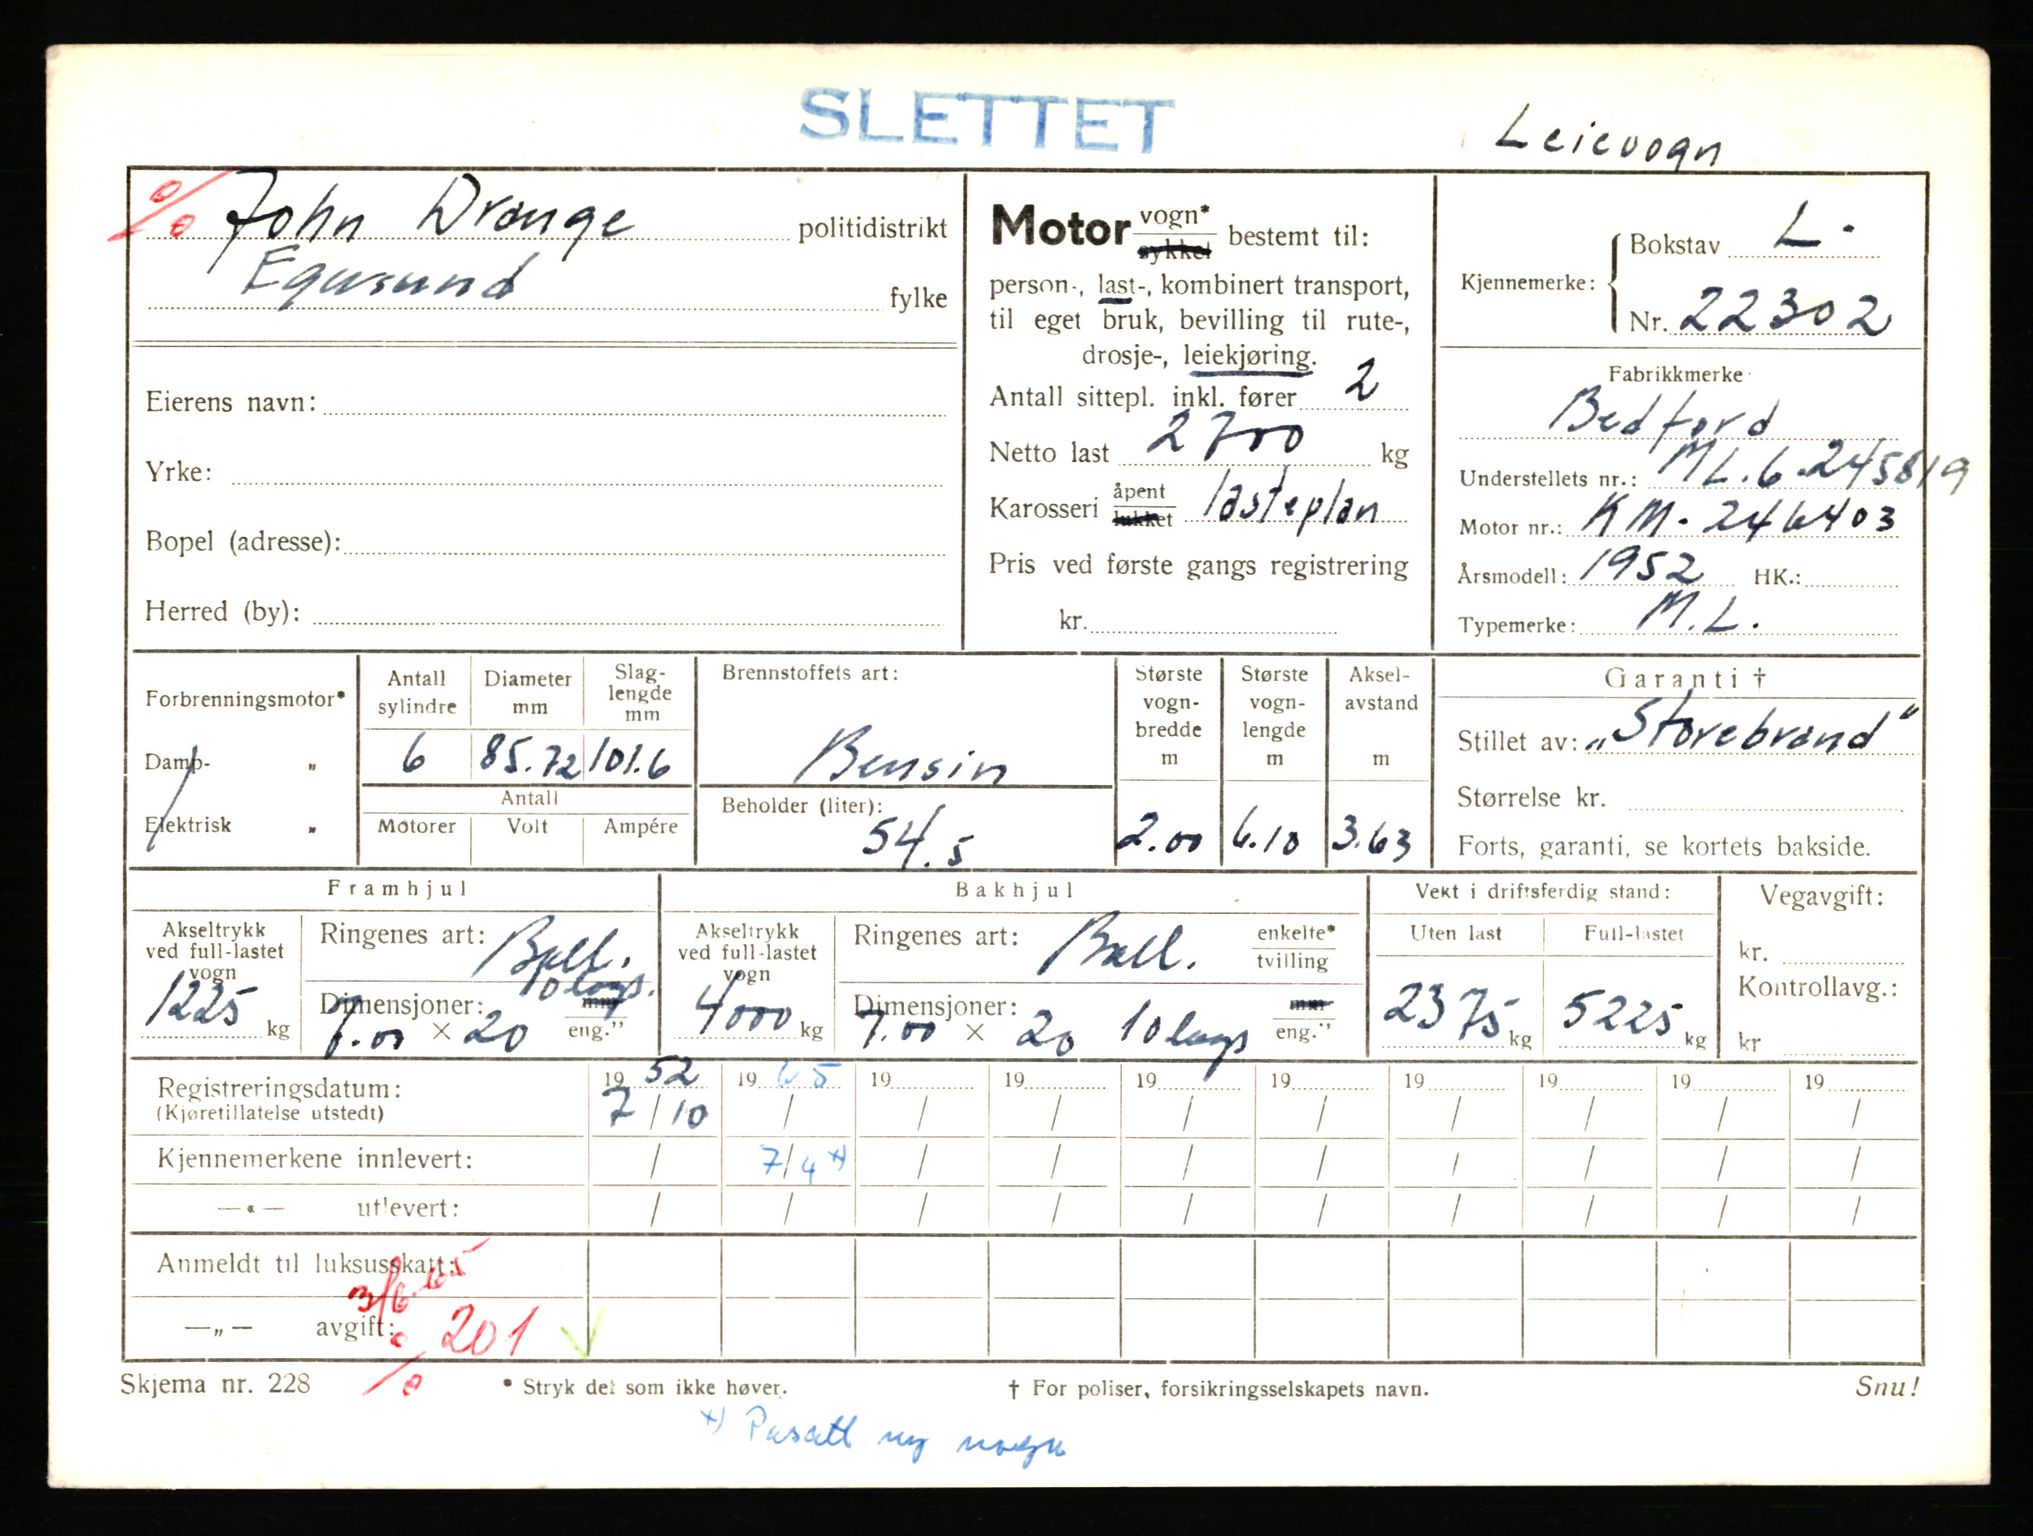 SLETTET
Leievogn
% John Drange politidistrikt
Egersund fylke
Eierens navn:
Yrke:
Bopel (adresse):
Herred (by):
Motor vogn* sykkel bestemt til:
person-, last-, kombinert transport,
til eget bruk, bevilling til rute-,
drosje-, leiekjøring.
Antall sittepl. inkl. fører 2
Netto last 2700 kg
Karosseri åpent lukket lasteplan
Pris ved første gangs registrering
kr.
Kjennemerke: Bokstav L.
Nr. 22302
Fabrikkmerke
Bedford
Understellets nr.: ML.6.245819
Motor nr.: KM. 246403
Årsmodell: 1952 HK.:
Typemerke: M.L.
Forbrenningsmotor*
Damp- „
Elektrisk „
Antall sylindre
Diameter mm
Slag-lengde mm
6 85.72 101.6
Antall
Motorer Volt Ampére
Brennstoffets art:
Bensin
Beholder (liter):
54.5
Største vogn-bredde m
2.00
Største vogn-lengde m
6.10
Aksel-avstand m
3.63
Garanti †
Stillet av: „Storebrand"
Størrelse kr.
Forts, garanti, se kortets bakside.
Framhjul
Akseltrykk ved full-lastet vogn
1225 kg
Ringenes art: Ball.
10 lags.
Dimensjoner: mm eng.”
7.00 × 20
Bakhjul
Akseltrykk ved full-lastet vogn
4000 kg
Ringenes art: Ball. enkelte* tvilling
Dimensjoner: mm eng.”
7.00 × 20 10 lags
Vekt i driftsferdig stand:
Uten last Full-lastet
2375 kg 5225 kg
Vegavgift:
kr.
Kontrollavg.:
kr
Registreringsdatum: 19 52 19 65 19 19 19 19 19 19 19 19
(Kjøretillatelse utstedt) 7/10 / / / / / / / / /
Kjennemerkene innlevert: / 7/4 *) / / / / / / / /
—«— utlevert: / / / / / / / / / /
Anmeldt til luksusskatt:
3/6.65
—„— avgift:
% 201
Skjema nr. 228 * Stryk det som ikke høver. † For poliser, forsikringsselskapets navn. Snu!
*) Påsatt ny vogn